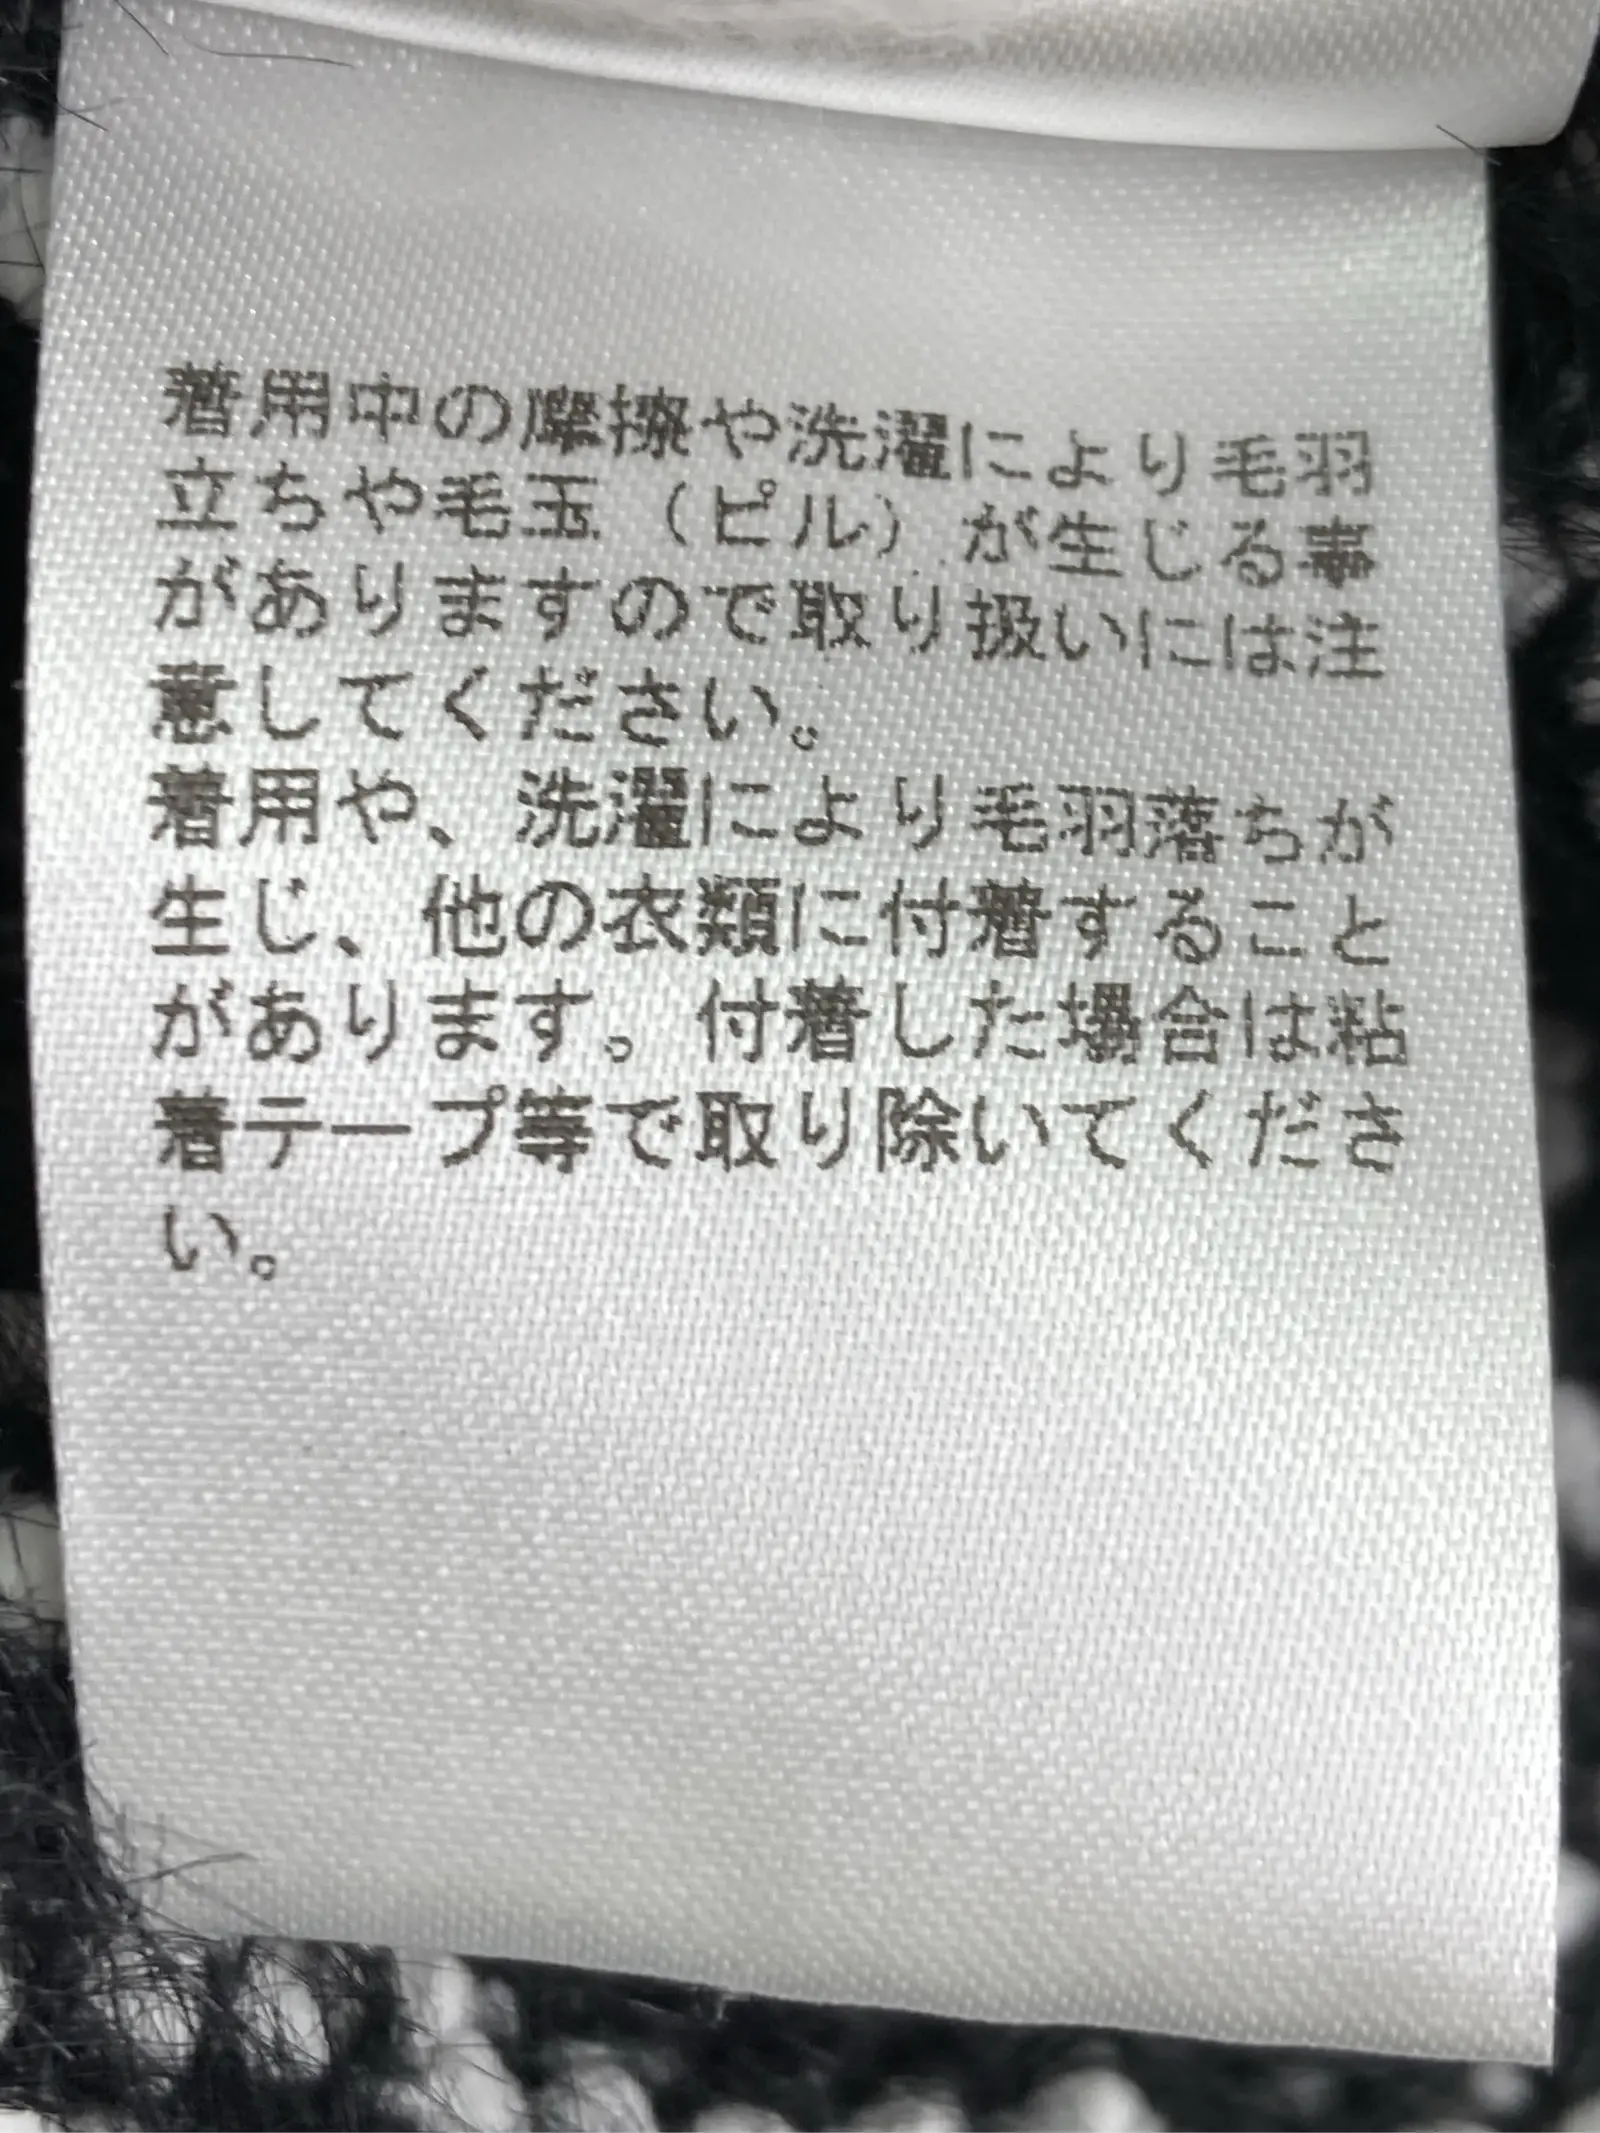 着用中の摩擦や洗濯により毛羽
立ちや毛玉（ピル）が生じる事
がありますので取り扱いには注
意してください。
着用や、洗濯により毛羽落ちが
生じ、他の衣類に付着すること
があります。付着した場合は粘
着テープ等で取り除いてくださ
い。